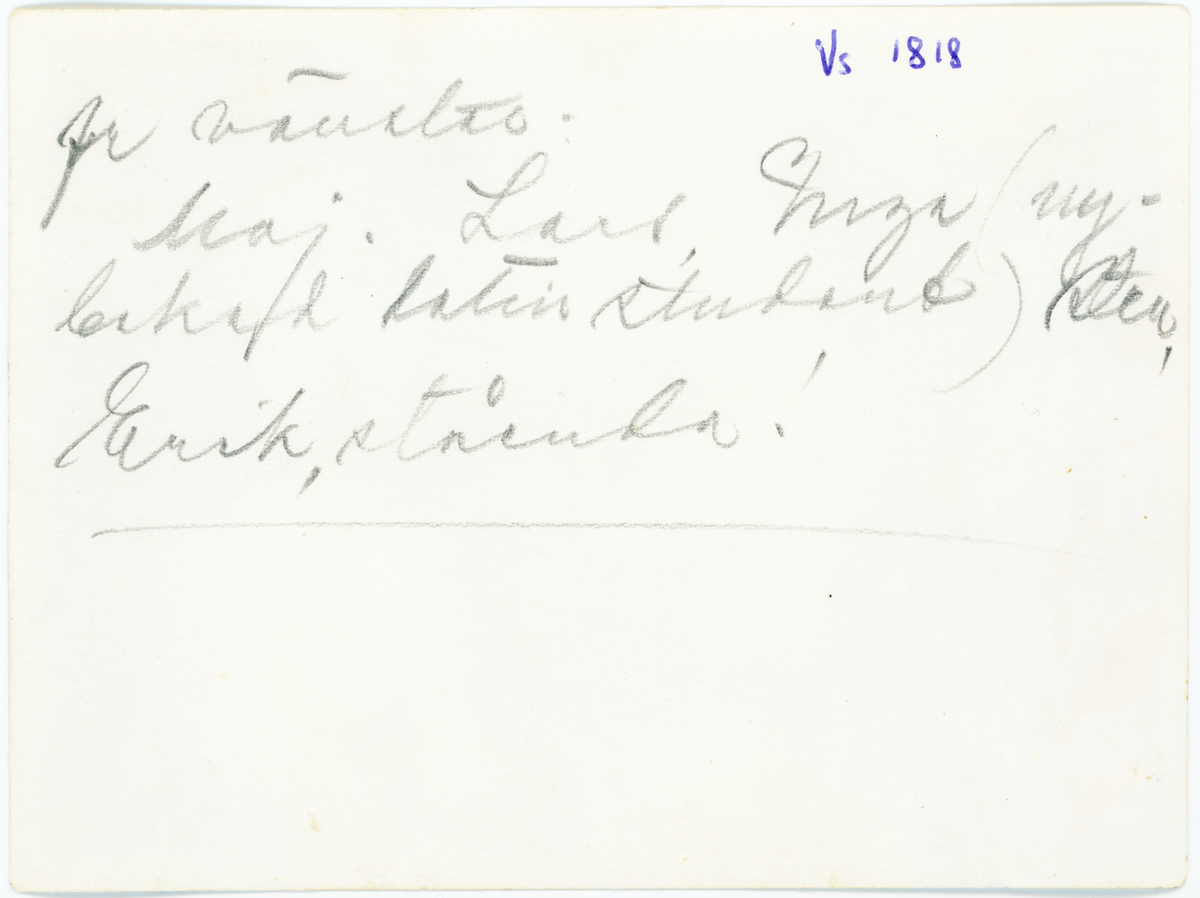 Vs 1818
fr vänster:
Maj. Lars, Inga (ny-
bakad latin student) Sten,
Erik, stående.